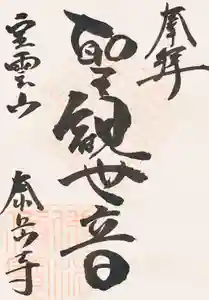 奉拝
聖観世音
宝雲山
泰岳寺